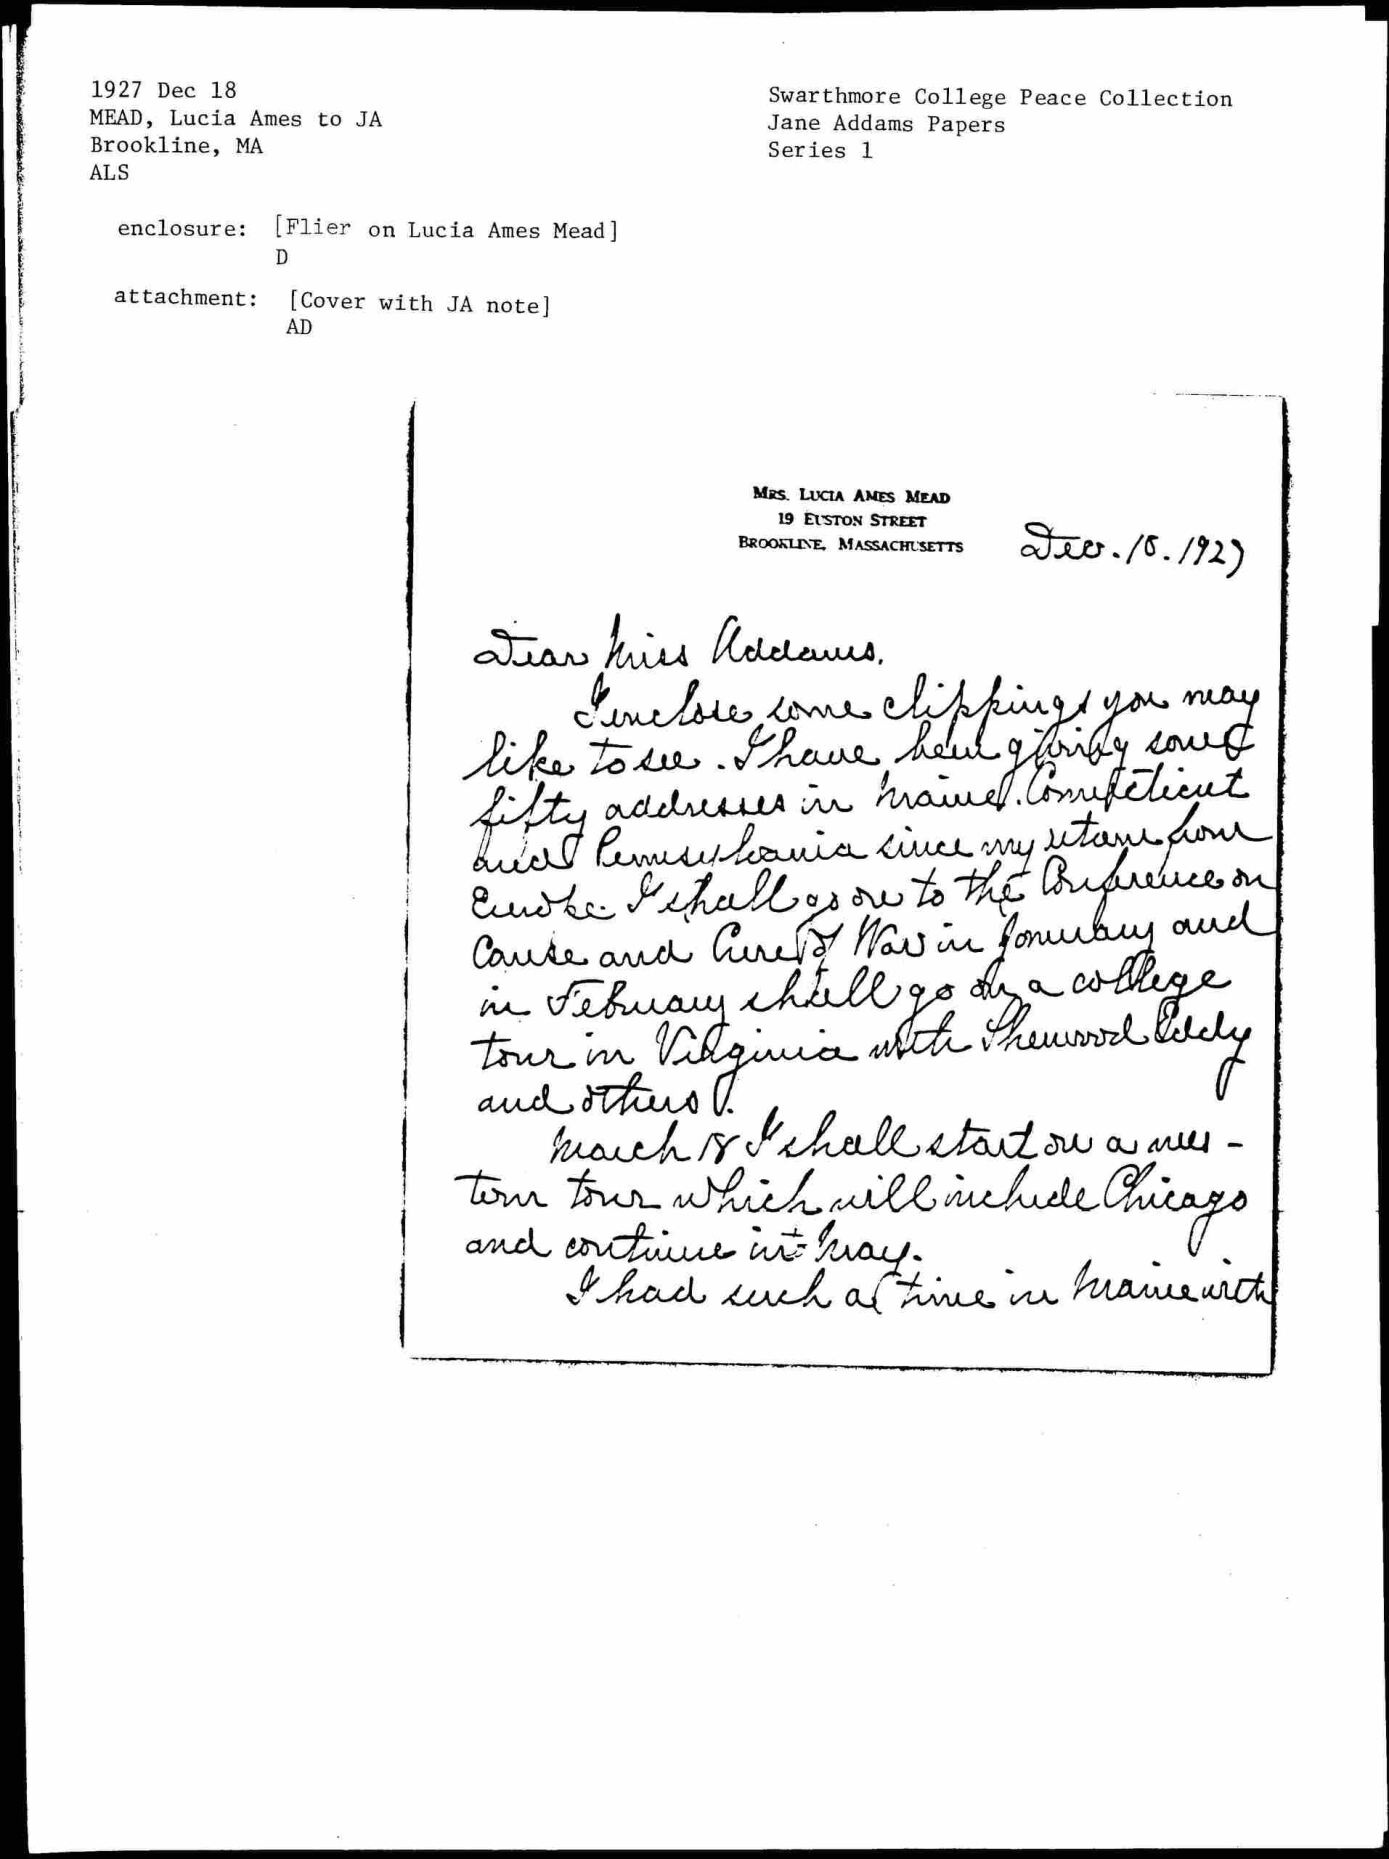 1927 Dec 18
MEAD, Lucia Ames to JA
Brookline, MA
ALS
Swarthmore College Peace Collection
Jane Addams Papers
Series 1
enclosure: [Flier on Lucia Ames Mead]
D
attachment: [Cover with JA note]
AD
MRS. LUCIA AMES MEAD
19 EUSTON STREET
BROOKLINE, MASSACHUSETTS
Dec. 18. 1927
Dear Miss Addams.
I enclose some clippings you may
like to see. I have been giving some
fifty addresses in Maine. Connecticut
and Pennsylvania since my return from
Europe. I shall go on to the Conference on
Cause and Cure of War in January and
in February shall go on a college
tour in Virginia with Sherwood Eddy
and others.
March 18 I shall start on a wes-
tern tour which will include Chicago
and continue into May.
I had such a time in Maine with